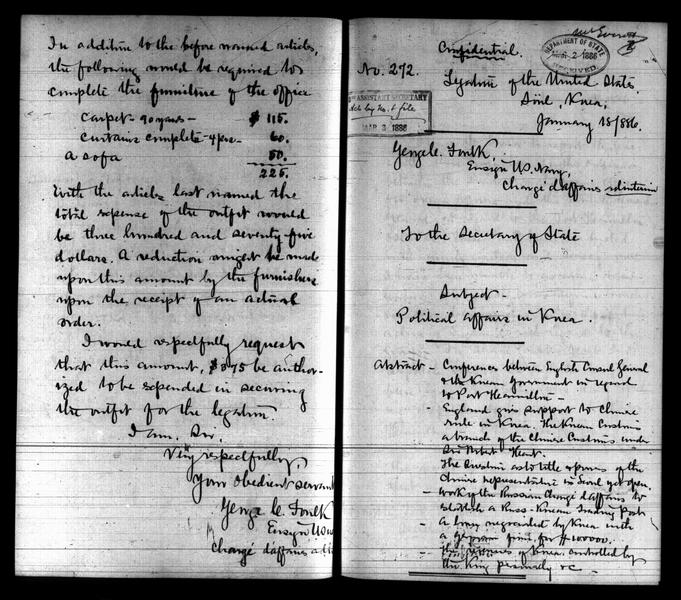 In addition to the before named articles,
the following would be required to
complete the furniture of the office
Carpet - 90 yards - $ 115.
Curtains complete - 4 prs - 60.
a sofa 50.
225.
With the articles last named the
total expense of the outfit would
be three hundred and seventy five
dollars. A reduction might be made
upon this amount by the furnishers
upon the receipt of an actual
order.
I would respectfully request
that this amount, $375 be author-
ized to be expended in securing
the outfit for the legation.
I am, Sir,
Very respectfully,
Your obedient servant
George C. Foulk
Ensign US
Chargé d'affaires ad
Confidential.
DEPARTMENT OF STATE
2 1886
RECEIVED
No. 272.
Legation of the United States.
Söul, Korea,
January 18/886.
ASSISTANT SECRETARY
file
MAR 3 1886
George C. Foulk,
Ensign US. Navy,
Chargé d'affaires ad interim
To the Secretary of State
Subject -
Political affairs in Korea.
Abstract - Conferences between English Consul General
& the Korean Government in regard
to Port Hamilton -
- England give support to Chinese
rule in Korea. The Korean Customs
a branch of the Chinese Customs under
Sir Robert Heart.
The question as to title & powers of the
Chinese representative in Seoul yet open.
- Work of the Russian Chargé d'affaires to
establish a Russ-Korean Trading Post
- A loan negotiated by Korea with
a German firm for $100000.
- The of Korea controlled by
the King personally &c